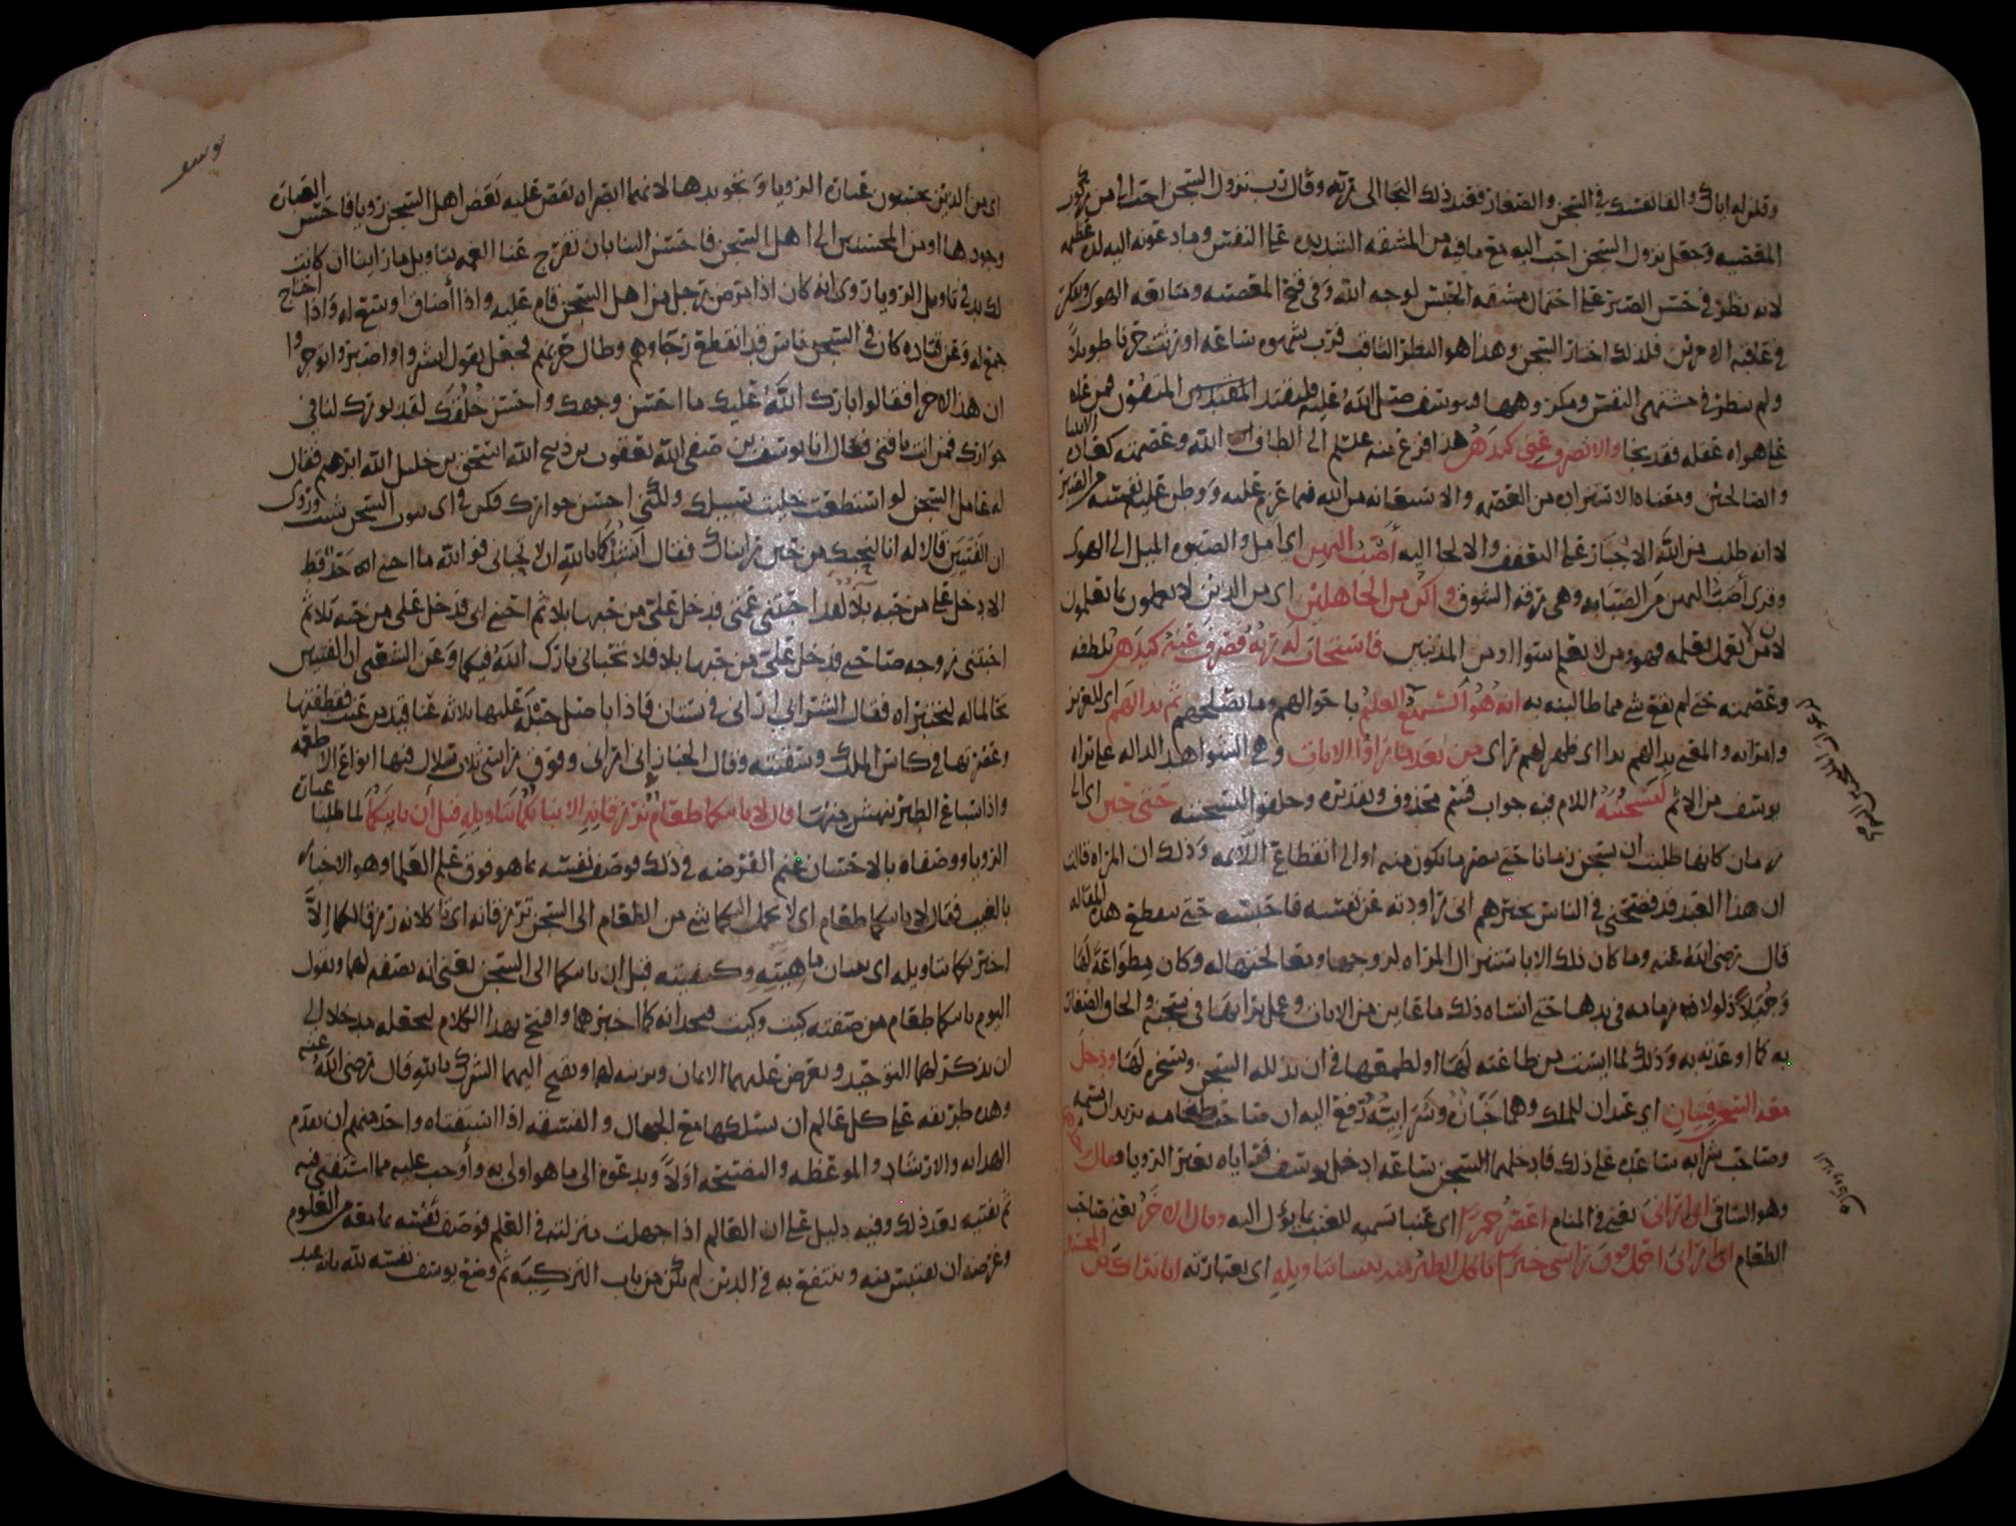 وقلن له اياك والقا نفسك في السجن والصغار فعند ذلك التجا الى ربه وقال رب نزول السجن احب الي من ركوب
المعصيه وجعل نزول السجن احب اليه مع ما فيه من المشقه الشديده على النفس وما دعونه اليه لذه عظيمه
لانه نظر في حسن الصبر على احتمال مشقه الحبس لوجه الله وفي قبح المعصيه ومتابعه الهوى وفكر
في عاقبه الامرين فلذلك اختار السجن وهذا هو النظر الثاقب فرب شهوه ساعه اورثت حزنا طويلا
ولم ينظر في مشتهى النفس ومكروهها ويوسف صلى الله عليه
على هواه عقله فقد نجا والا تصرف عني كيدهن هذا فزع منه عليلم الى الطاف الله وعصمته كعادة الانبيا
والصالحين ومعناه الاستزاده من العصمه والاستعانه من الله فيما عزم عليه ووطن عليه نفسه من الصبر
لانه طلب من الله الاجبار على التعفف والالجا اليه أصب اليهن اي امل والصبوه الميل الى الهوى
وقرى أصب اليهن من الصبابه وهي رقه الشوق واكن من الجاهلين اي من الذين لا يعملون بما يعلمون
لان من لا يعمل بعلمه فهو ومن لا يعلم سواء او من المذنبين فاستجاب له ربه فصرف عنه كيدهن بلطفه
وعصمته حتى لم يقع شي مما طالبنه به انه هو السميع العليم باحوالهم وما يصلحهم ثم بدا لهم اي للعزيز
وامراته والمعنى بدا لهم بدا اي ظهر لهم راي من بعد ما راوا الايات وهي الشواهد الداله على براه
يوسف من الاثم ليسجننه اللام فيه جواب قسم محذوف وتقديره وحلفوا ليسجننه حتى حين اي الى
زمان كانها طلبت ان يسجن زمانا حتى تبصر ما يكون منه او الى انقطاع اللائمه وذلك ان المراه قالت
ان هذا العبد قد فضحني في الناس يخبرهم اني راودته عن نفسه فاحبسه حتى تنقطع هذه المقاله
قال رضي الله عنه وما كان ذلك الا باستنزال المراه لزوجها ومعالجتها له وكان مطواعة لها
وجملا ذلولا زمامه في يدها حتى انساه ذلك ما عاين من الايات وعمل برايها في سجنه والحاق الصغار
به كما اوعدته به وذلك لما ايست من طاعته لها او لطمعها في ان يذلله السجن ويسخره لها ودخل
معه السجن فتيان اي عبدان للملك وهما خبازه وشرابيه رفع اليه ان صاحب طعامه يريد ان يسمه
وصاحب شرابه ساعده على ذلك فادخلهما السجن ساعه ادخل يوسف فراياه يعبر الرويا وقال احدهما
وهو الساقي اني اراني يعني في المنام اعصر خمرا اي عنبا تسميه للعنب بما يؤل اليه وقال الاخر يعني صاحب
الطعام اني اراني احمل فوق راسي خبزا تاكل الطير منه نبئنا بتاويله اي بعبارته انا نراك من المحسنين
يوسف
اي من الذين يحسنون عبارة الرويا ويجودها لانهما ابصراه يقص عليه بعض اهل السجن رويا فاحسن العبارة
وجودها او من المحسنين الى اهل السجن فاحسن الينا بان تفرج عنا الغمه بتاويل ما راينا ان كانت
لك يد في تاويل الرويا روي انه كان اذا مرض رجل من اهل السجن قام عليه واذا أضاق اوسع له واذا احتاج
جمع له وعن قتاده كان في السجن ناس قد انقطع رجاوهم وطال حزنهم فجعل يقول ابشروا واصبروا توجروا
ان هذا لاجرا فقالوا بارك الله عليك ما احسن وجهك واحسن خلقك لقد بورك لنا في
جوارك فمن انت يا فتى فقال انا يوسف بن صفي الله يعقوب بن ذبيح الله اسحق بن خليل الله ابرهيم فقال
له عامل السجن لو استطعت خليت سبيلك ولكني احسن جوارك فكن في اي بيوت السجن شيت وروى
ان الفتيين قالا له انا لنحبك من حين رايناك فقال انشدكما بالله ان لا تحباني فوالله ما احبني احد قط
الا دخل علي من حبه بلا لقد احبتني عمتي فدخل علي من حبها بلا ثم احبني ابي فدخل علي من حبه بلا ثم
احبتني زوجه صاحبي فدخل علي من حبها بلا فلا تحباني بارك الله فيكما وعن الشعبي ان الفتيين
تحالما له ليختبراه فقال الشرابي اني اراني في بستان فاذا باصل حبلة عليها ثلاثه عناقيد من عنب فقطفتها
وعصرتها في كاس الملك وسقيته وقال الخباز إني اراني وفوق راسي ثلاث سلال فيها انواع الاطعمه
واذا سباع الطير تنهش منها قال لا ياتيكما طعام ترزقانه الا نباتكما بتاويله قبل أن ياتيكما لما طلبا عبارة
الرويا ووصفاه بالاحسان غنم الفرصه في ذلك فوصف نفسه بما هو فوق علم العلما وهو الاخبار
بالغيب فقال لا ياتيكما طعام اي لا يحمل اليكما شي من الطعام الى السجن ترزقانه اي تاكلانه رزقا لكما الا
اخبرتكما بتاويله اي ببيان ماهيته وكيفيته قبل ان ياتيكما الى السجن يعني انه يصفه لهما ويقول
اليوم ياتيكما طعام من صفته كيت وكيت فيجدانه كما اخبرهما وافتتح بهذا الكلام ليجعله مدخلا الى
ان يذكر لهما التوحيد ويعرض عليهما الايمان ويزينه لهما ويقبح اليهما الشرك بالله قال رضي الله عنه
وهذه طريقه على كل عالم ان يسلكها مع الجهال والفسقه اذا استفتاه واحد منهم ان يقدم
الهدايه والارشاد والموعظه والنصيحه اولا ويدعوه الى ما هو اولى به وأوجب عليه مما استفتى فيه
ثم يفتيه بعد ذلك وفيه دليل على ان العالم اذا جهلت منزلته في العلم فوصف نفسه بما معه من العلوم
وغرضه ان يقتبس منه وينتفع به في الدين لم يكن من باب التزكيه ثم وضع يوسف نفسه لله بانه عبد